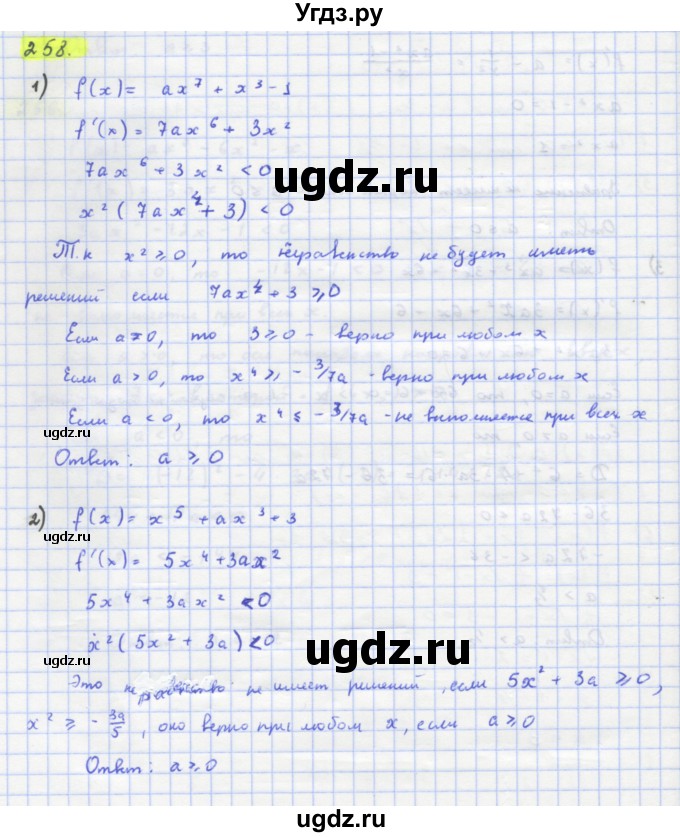 Угдз.ру
258.
1) f(x) = ax⁷ + x³ - 1
f'(x) = 7ax⁶ + 3x²
7ax⁶ + 3x² < 0
x²(7ax⁴ + 3) < 0
ugdz.ru
Т.к x² ≥ 0, то неравенство не будет иметь
решений если 7ax⁴ + 3 ≥ 0
Если a = 0, то 3 ≥ 0 - верно при любом x
Если a > 0, то x⁴ ≥ - 3/7a - верно при любом x
Если a < 0, то x⁴ ≤ - 3/7a - не выполняется при всех x
ugdz.ru
ugdz.ru
Ответ: a ≥ 0
2) f(x) = x⁵ + ax³ + 3
f'(x) = 5x⁴ + 3ax²
5x⁴ + 3ax² < 0
x²(5x² + 3a) < 0
ugdz.ru
ugdz.ru
Это неравенство не имеет решений, если 5x² + 3a ≥ 0,
x² ≥ - 3a/5, оно верно при любом x, если a ≥ 0
Ответ: a ≥ 0
ugdz.ru